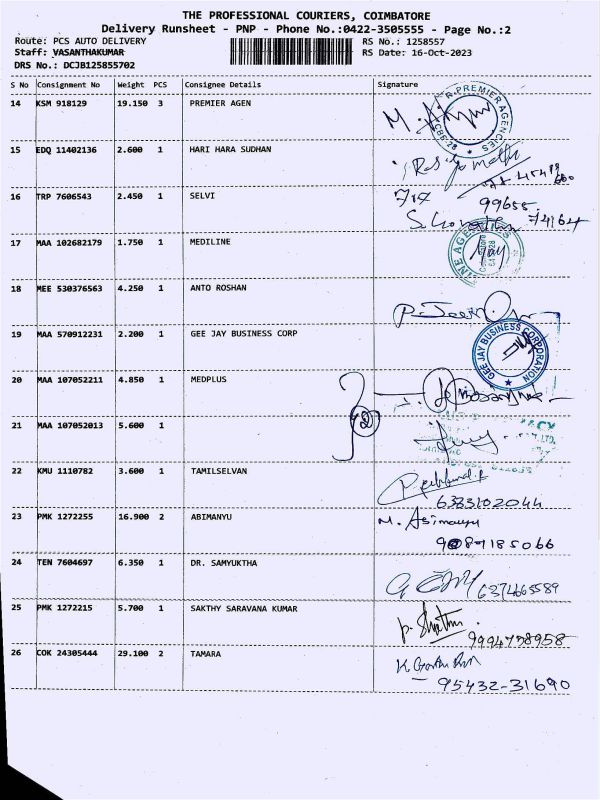 THE PROFESSIONAL COURIERS, COIMBATORE
Delivery Runsheet - PNP - Phone No.:0422-3505555 - Page No.:2
Route: PCS AUTO DELIVERY RS No.: 1258557
Staff: VASANTHAKUMAR RS Date: 16-Oct-2023
DRS No.: DCJB125855702
S No Consignment No Weight PCS Consignee Details Signature
14 KSM 918129 19.150 3 PREMIER AGEN
PREMIER AGENCIES
15 EDQ 11402136 2.600 1 HARI HARA SUDHAN
16 TRP 7606543 2.450 1 SELVI
99655
74164
17 MAA 102682179 1.750 1 MEDILINE
18 MEE 530376563 4.250 1 ANTO ROSHAN
19 MAA 570912231 2.200 1 GEE JAY BUSINESS CORP
GEE JAY BUSINESS CORPORATION
20 MAA 107052211 4.850 1 MEDPLUS
21 MAA 107052013 5.600 1
22 KMU 1110782 3.600 1 TAMILSELVAN
6383102044
23 PMK 1272255 16.900 2 ABIMANYU
M. Abimanyu
24 TEN 7604697 6.350 1 DR. SAMYUKTHA
6374665589
25 PMK 1272215 5.700 1 SAKTHY SARAVANA KUMAR
9994738958
26 COK 24305444 29.100 2 TAMARA
95432-31690